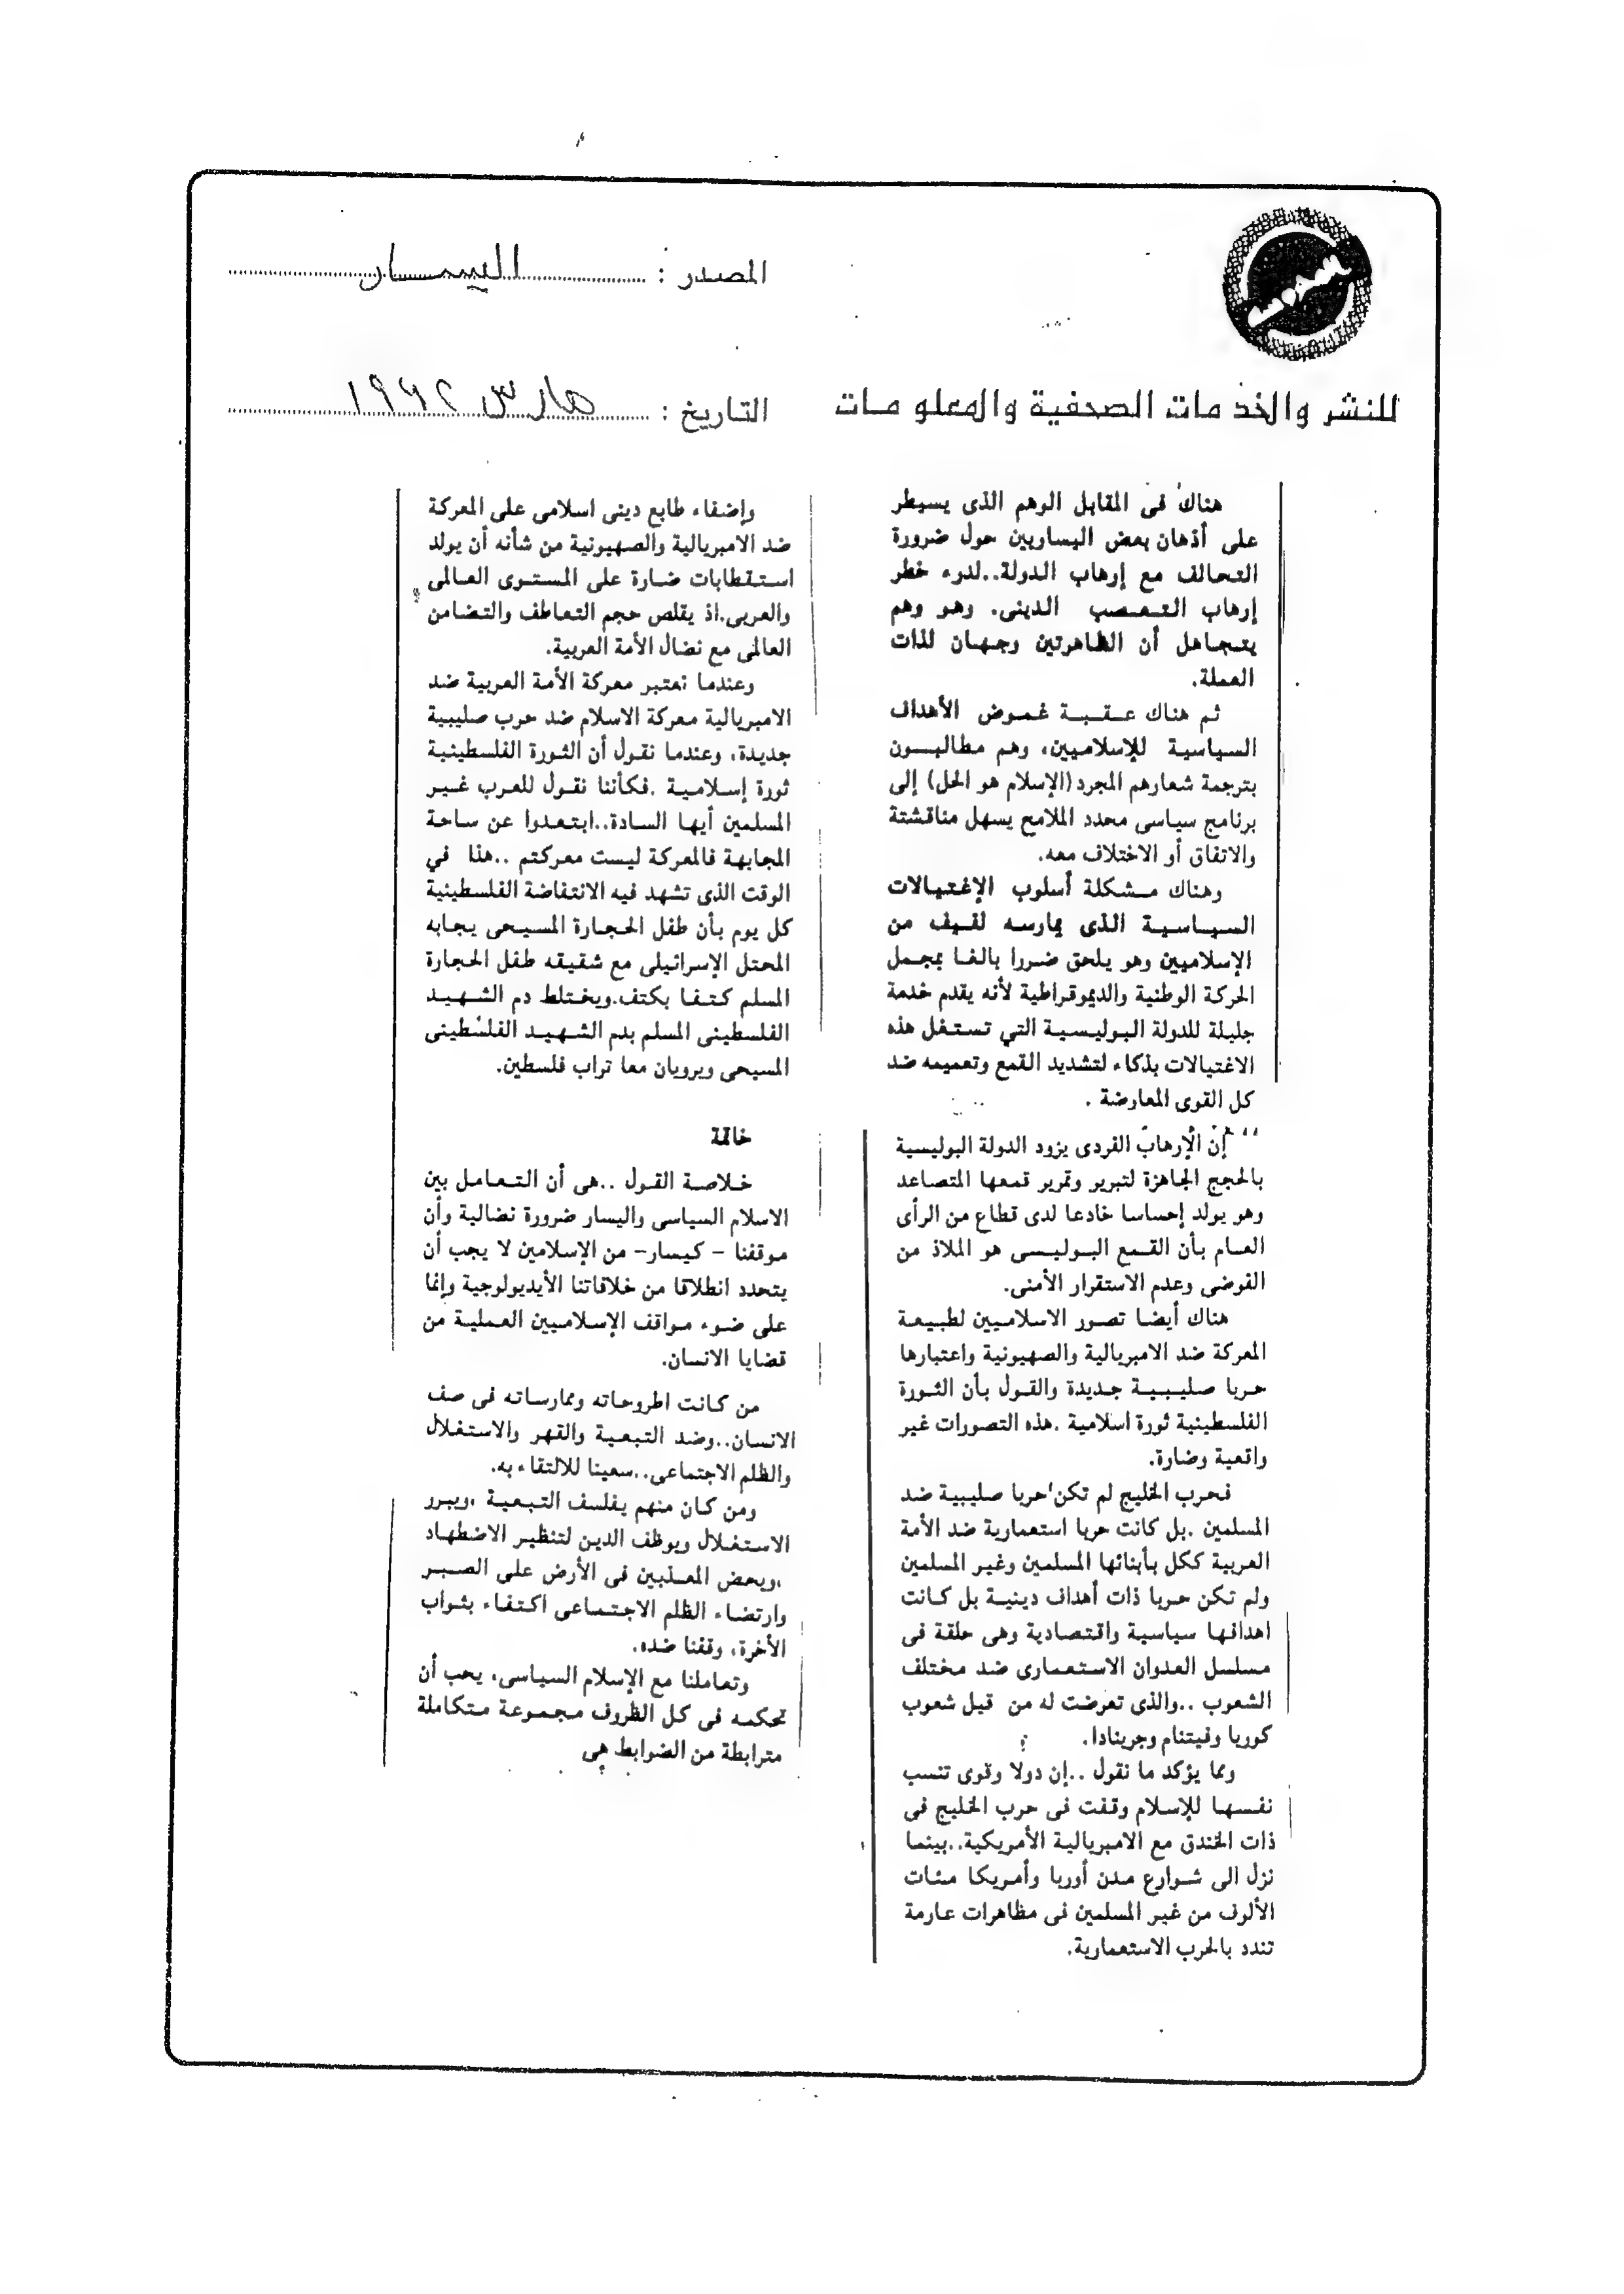 المصدر : اليسار
للنشر والخدمات الصحفية والمعلومات
التاريخ : مارس ١٩٩٢
هناك فى المقابل الوهم الذى يسيطر
على أذهان بعض اليساريين حول ضرورة
التحالف مع إرهاب الدولة..لدرء خطر
إرهاب التعصب الدينى. وهو وهم
يتجاهل أن الظاهرتين وجهان لذات
العملة.
ثم هناك عقبة غموض الأهداف
السياسية للإسلاميين، وهم مطالبون
بترجمة شعارهم المجرد (الإسلام هو الحل) إلى
برنامج سياسى محدد الملامح يسهل مناقشتة
والاتفاق أو الاختلاف معه.
وهناك مشكلة أسلوب الإغتيالات
السياسية الذى يمارسه لفيف من
الإسلاميين وهو يلحق ضررا بالغا بمجمل
الحركة الوطنية والديموقراطية لأنه يقدم خدمة
جليلة للدولة البوليسية التي تستغل هذه
الاغتيالات بذكاء لتشديد القمع وتعميمه ضد
كل القوى المعارضة .
إن الإرهاب الفردى يزود الدولة البوليسية
بالحجج الجاهزة لتبرير وتمرير قمعها المتصاعد
وهو يولد إحساسا خادعا لدى قطاع من الرأى
العام بأن القمع البوليسى هو الملاذ من
الفوضى وعدم الاستقرار الأمنى.
هناك أيضا تصور الاسلاميين لطبيعة
المعركة ضد الامبريالية والصهيونية واعتبارها
حربا صليبية جديدة والقول بأن الثورة
الفلسطينية ثورة اسلامية .هذه التصورات غير
واقعية وضارة.
فحرب الخليج لم تكن حربا صليبية ضد
المسلمين .بل كانت حربا استعمارية ضد الأمة
العربية ككل بأبنائها المسلمين وغير المسلمين
ولم تكن حربا ذات أهداف دينية بل كانت
اهدافها سياسية واقتصادية وهى حلقة فى
مسلسل العدوان الاستعمارى ضد مختلف
الشعوب ..والذى تعرضت له من قبل شعوب
كوريا وفيتنام وجرينادا.
ومما يؤكد ما نقول ..إن دولا وقوى تنسب
نفسها للإسلام وقفت فى حرب الخليج فى
ذات الخندق مع الامبريالية الأمريكية..بينما
نزل الى شوارع مدن أوربا وأمريكا مئات
الألوف من غير المسلمين فى مظاهرات عارمة
تندد بالحرب الاستعمارية.
وإضفاء طابع دينى اسلامى على المعركة
ضد الامبريالية والصهيونية من شأنه أن يولد
استقطابات ضارة على المستوى العالمى
والعربى.اذ يقلص حجم التعاطف والتضامن
العالمى مع نضال الأمة العربية.
وعندما نعتبر معركة الأمة العربية ضد
الامبريالية معركة الاسلام ضد حرب صليبية
جديدة، وعندما نقول أن الثورة الفلسطينية
ثورة إسلامية .فكأننا نقول للعرب غير
المسلمين أيها السادة..ابتعدوا عن ساحة
المجابهة فالمعركة ليست معركتم ..هذا في
الوقت الذى تشهد فيه الانتفاضة الفلسطينية
كل يوم بأن طفل الحجارة المسيحى يجابه
المحتل الإسرائيلى مع شقيقه طفل الحجارة
المسلم كتفا بكتف.ويختلط دم الشهيد
الفلسطينى المسلم بدم الشهيد الفلسطينى
المسيحى ويرويان معا تراب فلسطين.
خاتمة
خلاصة القول ..هى أن التعامل بين
الاسلام السياسى واليسار ضرورة نضالية وأن
موقفنا – كيسار– من الإسلامين لا يجب أن
يتحدد انطلاقا من خلافاتنا الأيديولوجية وإنما
على ضوء مواقف الإسلاميين العملية من
قضايا الانسان.
من كانت اطروحاته وممارساته فى صف
الانسان..وضد التبعية والقهر والاستغلال
والظلم الاجتماعى..سعينا للالتقاء به.
ومن كان منهم يفلسف التبعية ،ويبرر
الاستغلال ويوظف الدين لتنظير الاضطهاد
،ويحض المعذبين فى الأرض على الصبر
وارتضاء الظلم الاجتماعى اكتفاء بثواب
الأخرة، وقفنا ضده.
وتعاملنا مع الإسلام السياسى، يجب أن
تحكمه فى كل الظروف مجموعة متكاملة
مترابطة من الضوابط هى